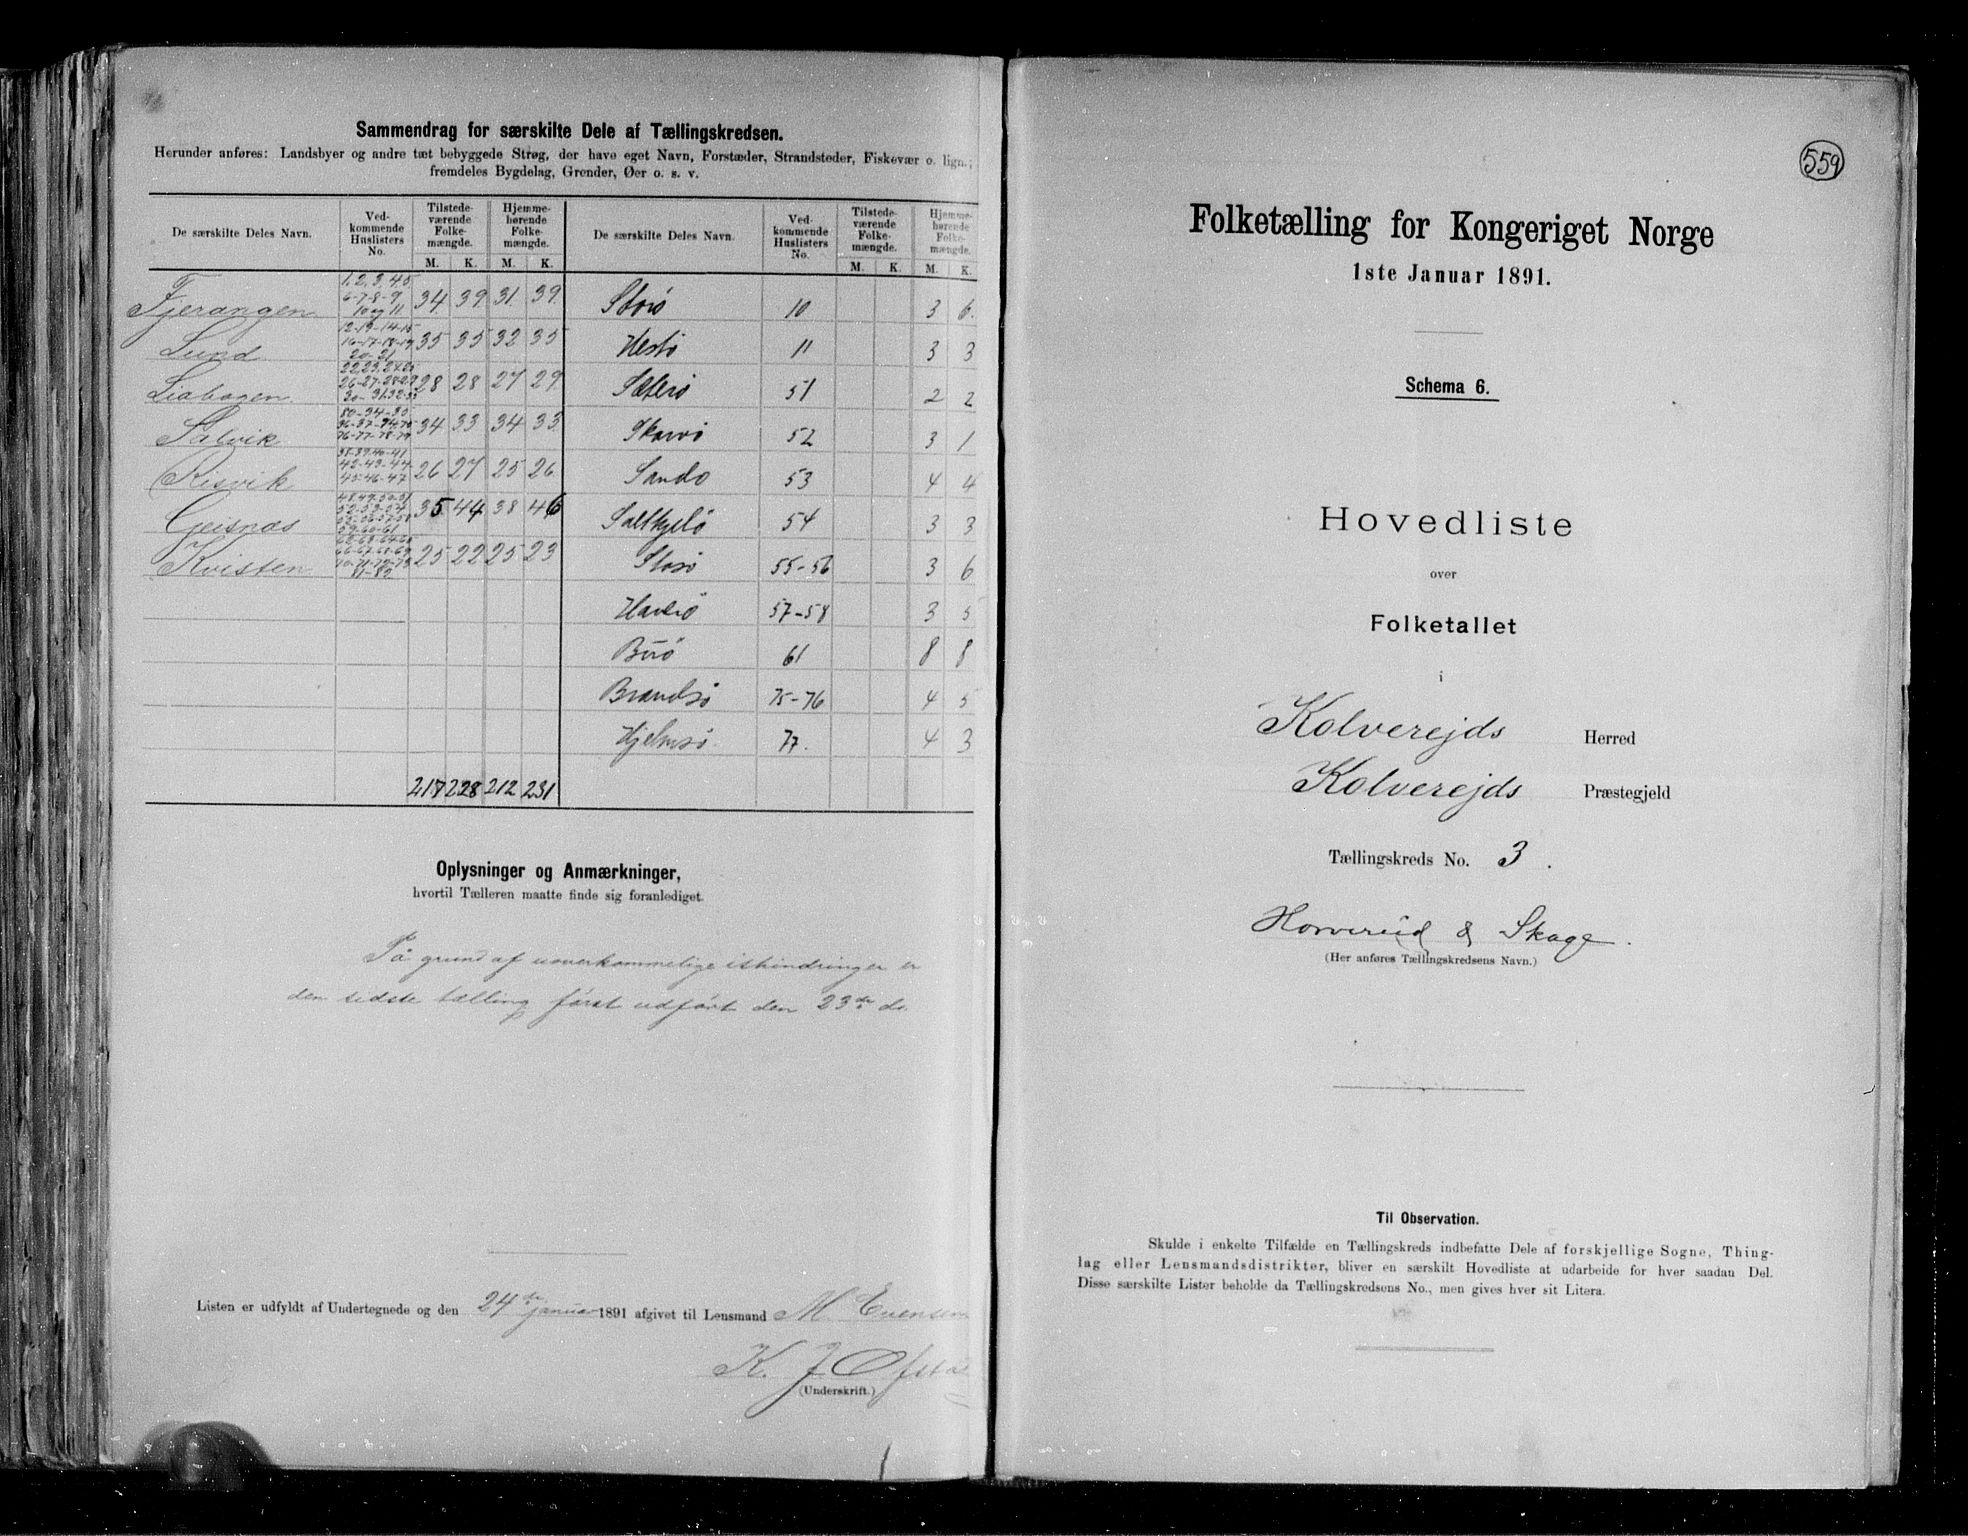 Sammendrag for særskilte Dele af Tællingskredsen.
Herunder anføres: Landsbyer og andre tæt bebyggede Strøg, der have eget Navn, Forstæder, Strandsteder, Fiskevær o. lign.;
fremdeles Bygdelag, Grender, Øer o. s. v.
De særskilte Deles Navn. Ved-kommende Huslisters No. Tilstede-værende Folke-mængde. M. K. Hjemme-hørende Folke-mængde. M. K. De særskilte Deles Navn. Ved-kommende Huslisters No. Tilstede-værende Folke-mængde. M. K. Hjemme-hørende Folke-mængde. M. K.
Fjerangen 1, 2, 3, 4 5 6-7-8-9 10 og 11 34 39 31 39 Storø 10 3 6
Lund 12-13-14-15 16-17-18-19 20-21 35 35 32 35 Hestø 11 3 3
Liabogen 28 28 27 29 Sæterø 51 2 2
Salvik 34 33 34 33 Skarvø 52 3 1
Risvik 38-39-40-41 42-43-44 45-46-47 26 27 25 26 Sandø 53 4 4
Geisnæs 35 44 38 46 54 3 3
Kvisten 25 22 25 23 55-56 3 6
57-58 3 5
Burø 61 8 8
Brandsø 75-76 4 5
Hjelmsø 77. 4 3
217 228 212 231
Oplysninger og Anmærkninger,
hvortil Tælleren maatte finde sig foranlediget.
På grund af uoverkommelige ishindringer er
den sidste tælling først udført den 23de ds.
Listen er udfyldt af Undertegnede og den 24de januar 1891 afgivet til Lensmand M. Evensen
K. J. Øfsta
(Underskrift.)
559
Folketælling for Kongeriget Norge
1ste Januar 1891.
Schema 6.
Hovedliste
over
Folketallet
i
Kolverejds Herred
Kolverejds Præstegjeld
Tællingskreds No. 3.
Horvereid & Skage.
(Her anføres Tællingskredsens Navn.)
Til Observation.
Skulde i enkelte Tilfælde en Tællingskreds indbefatte Dele af forskjellige Sogne, Thing-
lag eller Lensmandsdistrikter, bliver en særskilt Hovedliste at udarbeide for hver saadan Del.
Disse særskilte Lister beholde da Tællingskredsens No., men gives hver sit Litera.